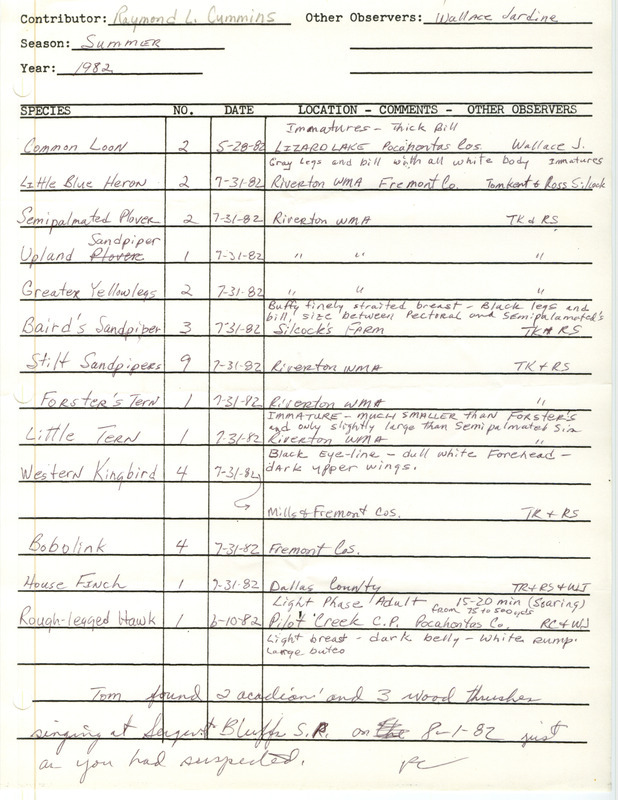 Contributor: Raymond L. Cummins Other Observers: Wallace Jardine
Season: Summer
Year: 1982
SPECIES NO. DATE LOCATION - COMMENTS - OTHER OBSERVERS
Immatures - Thick Bill
Common Loon 2 5-28-82 LIZARD LAKE Pocahontas Cos. Wallace J.
Gray Legs and bill with all white body Immatures
Little Blue Heron 2 7-31-82 Riverton WMA Fremont Co. Tom Kent & Ross Silcock
Semipalmated Plover 2 7-31-82 Riverton WMA TK & RS
Sandpiper
Upland Plover 1 7-31-82 " " "
Greater Yellowlegs 2 7-31-82 " " "
Buffy finely straited breast - Black legs and
bill, size between Pectoral and Semipalamated's
Baird's Sandpiper 3 7-31-82 Silcock's FARM TK & RS
Stilt Sandpipers 9 7-31-82 Riverton WMA TK & RS
Forster's Tern 1 7-31-82 Riverton WMA "
IMMATURE - much smaller than Forster's
and only slightly large than Semipalmated
Little Tern 1 7-31-82 Riverton WMA "
Black Eye-line - dull white Forehead -
Western Kingbird 4 7-31-82 dark upper wings.
Mills & Fremont Cos. TR & RS
Bobolink 4 7-31-82 Fremont Cos.
House Finch 1 7-31-82 Dallas County TR & RS & WJ
Light Phase Adult 15-20 min (Soaring)
from 75 to 500 yds
Rough-legged Hawk 1 6-10-82 Pilot Creek C.P. Pocahontas Co. RC & WJ
Light breast - dark belly - White rump.
Large buteo
Tom found 2 acadian' and 3 wood thrushes
singing at Sergent Bluffs S.P. on the 8-1-82 just
as you had suspected. RC